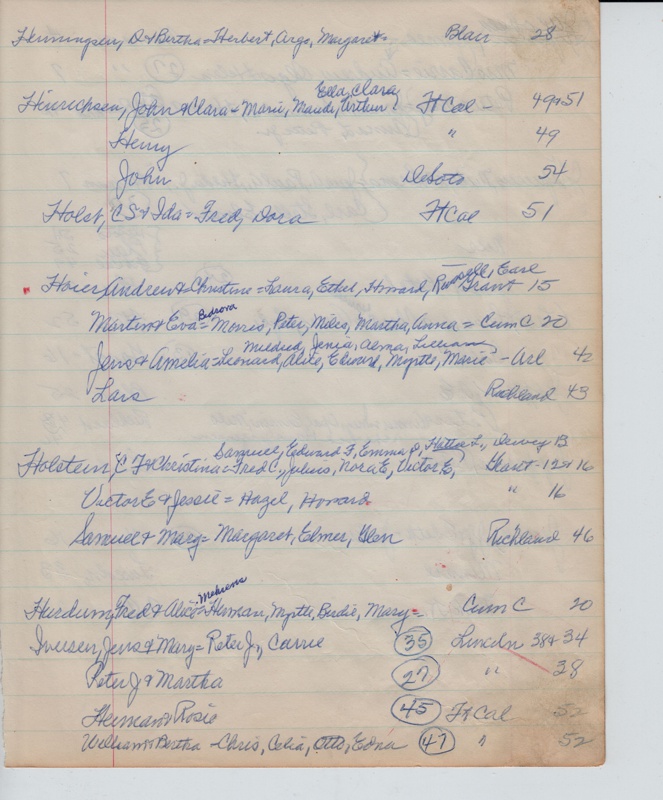 Hemmingsen, D & Bertha = Herbert, Argo, Margaret. Blair 28
Ella, Clara,
Hinrichsen, John & Clara = Marie, Maude, Arthur Ft Cal - 49 & 51
Henry " 49
John DeSoto 54
Holst, C S & Ida = Fred, Dora Ft Cal 51
Hoier, Andrew & Christine = Laura, Ethel, Howard, Russell, Earl
Grant 15
Martin & Eva = Bedrova Morris, Peter, Miles, Martha, Anna = Cum C 20
Mildred, Jenia, Alma, Lillian
Jens & Amelia = Leonard, Alice, Edward, Myrtle, Marie - Arl 42
Lars Richland 43
Samuel, Edward F, Emma J, Hattie L, Dewey B
Holstein, C F & Christina = Fred C, Julius, Nora E, Victor E, Grant - 12 & 16
Victor E & Jessie = Hazel, Howard " 16
Samuel & Mary = Margaret, Elmer, Glen Richland 46
Hurdum, Fred & Alice = Mehrens Herman, Myrtle, Birdie, Mary = Cum C 20
Iversen, Jens & Mary = Peter J, Carrie 35 Lincoln 38 & 34
Peter J & Martha 27 " 38
Herman & Rosie 45 Ft Cal 52
William & Bertha - Chris, Celia, Otto, Edna 47 " 52